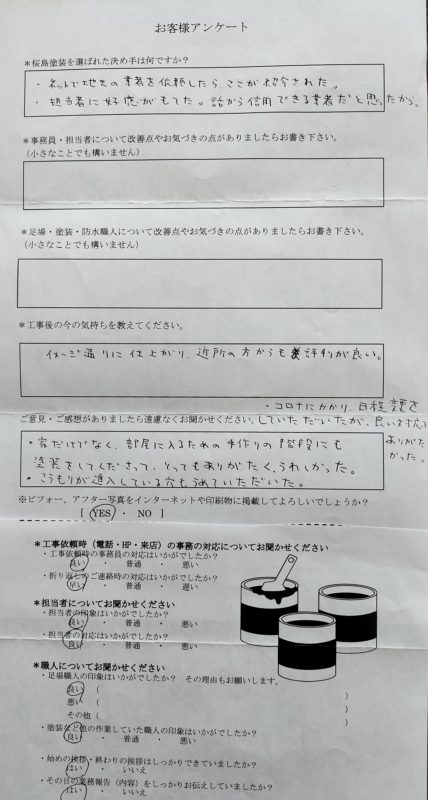 お客様アンケート
＊桜島塗装を選ばれた決め手は何ですか？
・ネットで地元の業者を依頼したら、ここが紹介された。
・担当者に好感がもてた。話から信用できる業者だと思ったから。
＊事務員・担当者について改善点やお気づきの点がありましたらお書き下さい。
（小さなことでも構いません）
＊足場・塗装・防水職人について改善点やお気づきの点がありましたらお書き下さい。
（小さなことでも構いません）
＊工事後の今の気持ちを教えてください。
イメージ通りに仕上がり、近所の方からも評判が良い。
・コロナにかかり、日程変更を
していただいたが、
ありがた
かった。
ご意見・ご感想がありましたら遠慮なくお聞かせください。
・家だけでなく、部屋に入るための手作りの階段にも
塗装をしてくださって、とってもありがたく、うれしかった。
・こうもりが進入している穴もうめていただいた。
※ビフォー、アフター写真をインターネットや印刷物に掲載してよろしいでしょうか？
[ YES ・ NO ]
＊工事依頼時（電話・HP・来店）の事務の対応についてお聞かせください
・工事依頼時の事務員の対応はいかがでしたか？
良い ・ 普通 ・ 悪い
・折り返しのご連絡時の対応はいかがでしたか？
早い ・ 普通 ・ 遅い
＊担当者についてお聞かせください
・担当者の印象はいかがでしたか？
良い ・ 普通 ・ 悪い
・担当者の対応はいかがでしたか？
良い ・ 普通 ・ 悪い
＊職人についてお聞かせください
・足場職人の印象はいかがでしたか？ その理由もお願いします。
良い （ ）
悪い （ ）
その他（ ）
・塗装など他の作業していた職人の印象はいかがでしたか？
良い ・ 普通 ・ 悪い
・始めの挨拶・終わりの挨拶はしっかりできていましたか？
はい ・ いいえ
・その日の業務報告（内容）をしっかりお伝えしていましたか？
はい ・ いいえ